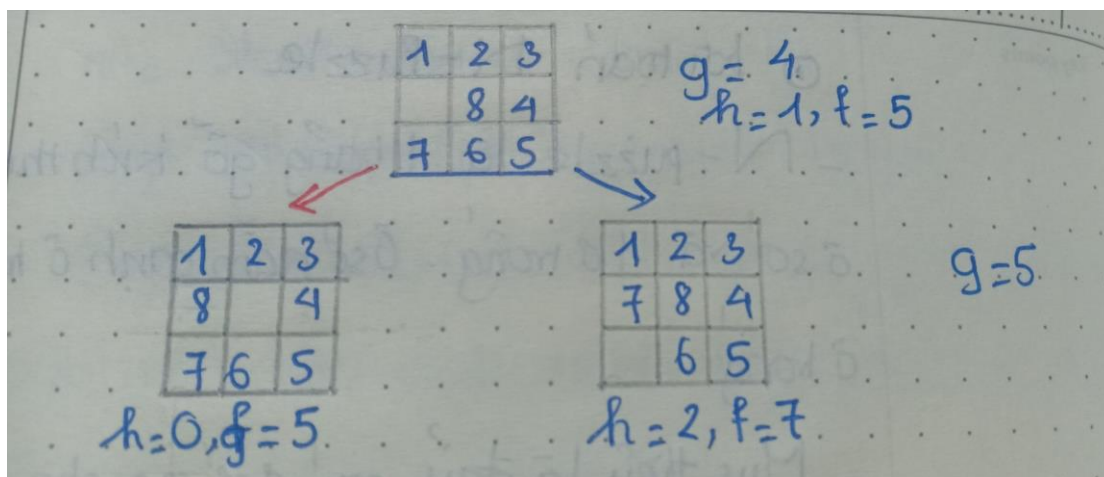 1 2 3
8 4
7 6 5
g = 4
h = 1, f = 5
1 2 3
8 4
7 6 5
h = 0, f = 5
1 2 3
7 8 4
6 5
h = 2, f = 7
g = 5